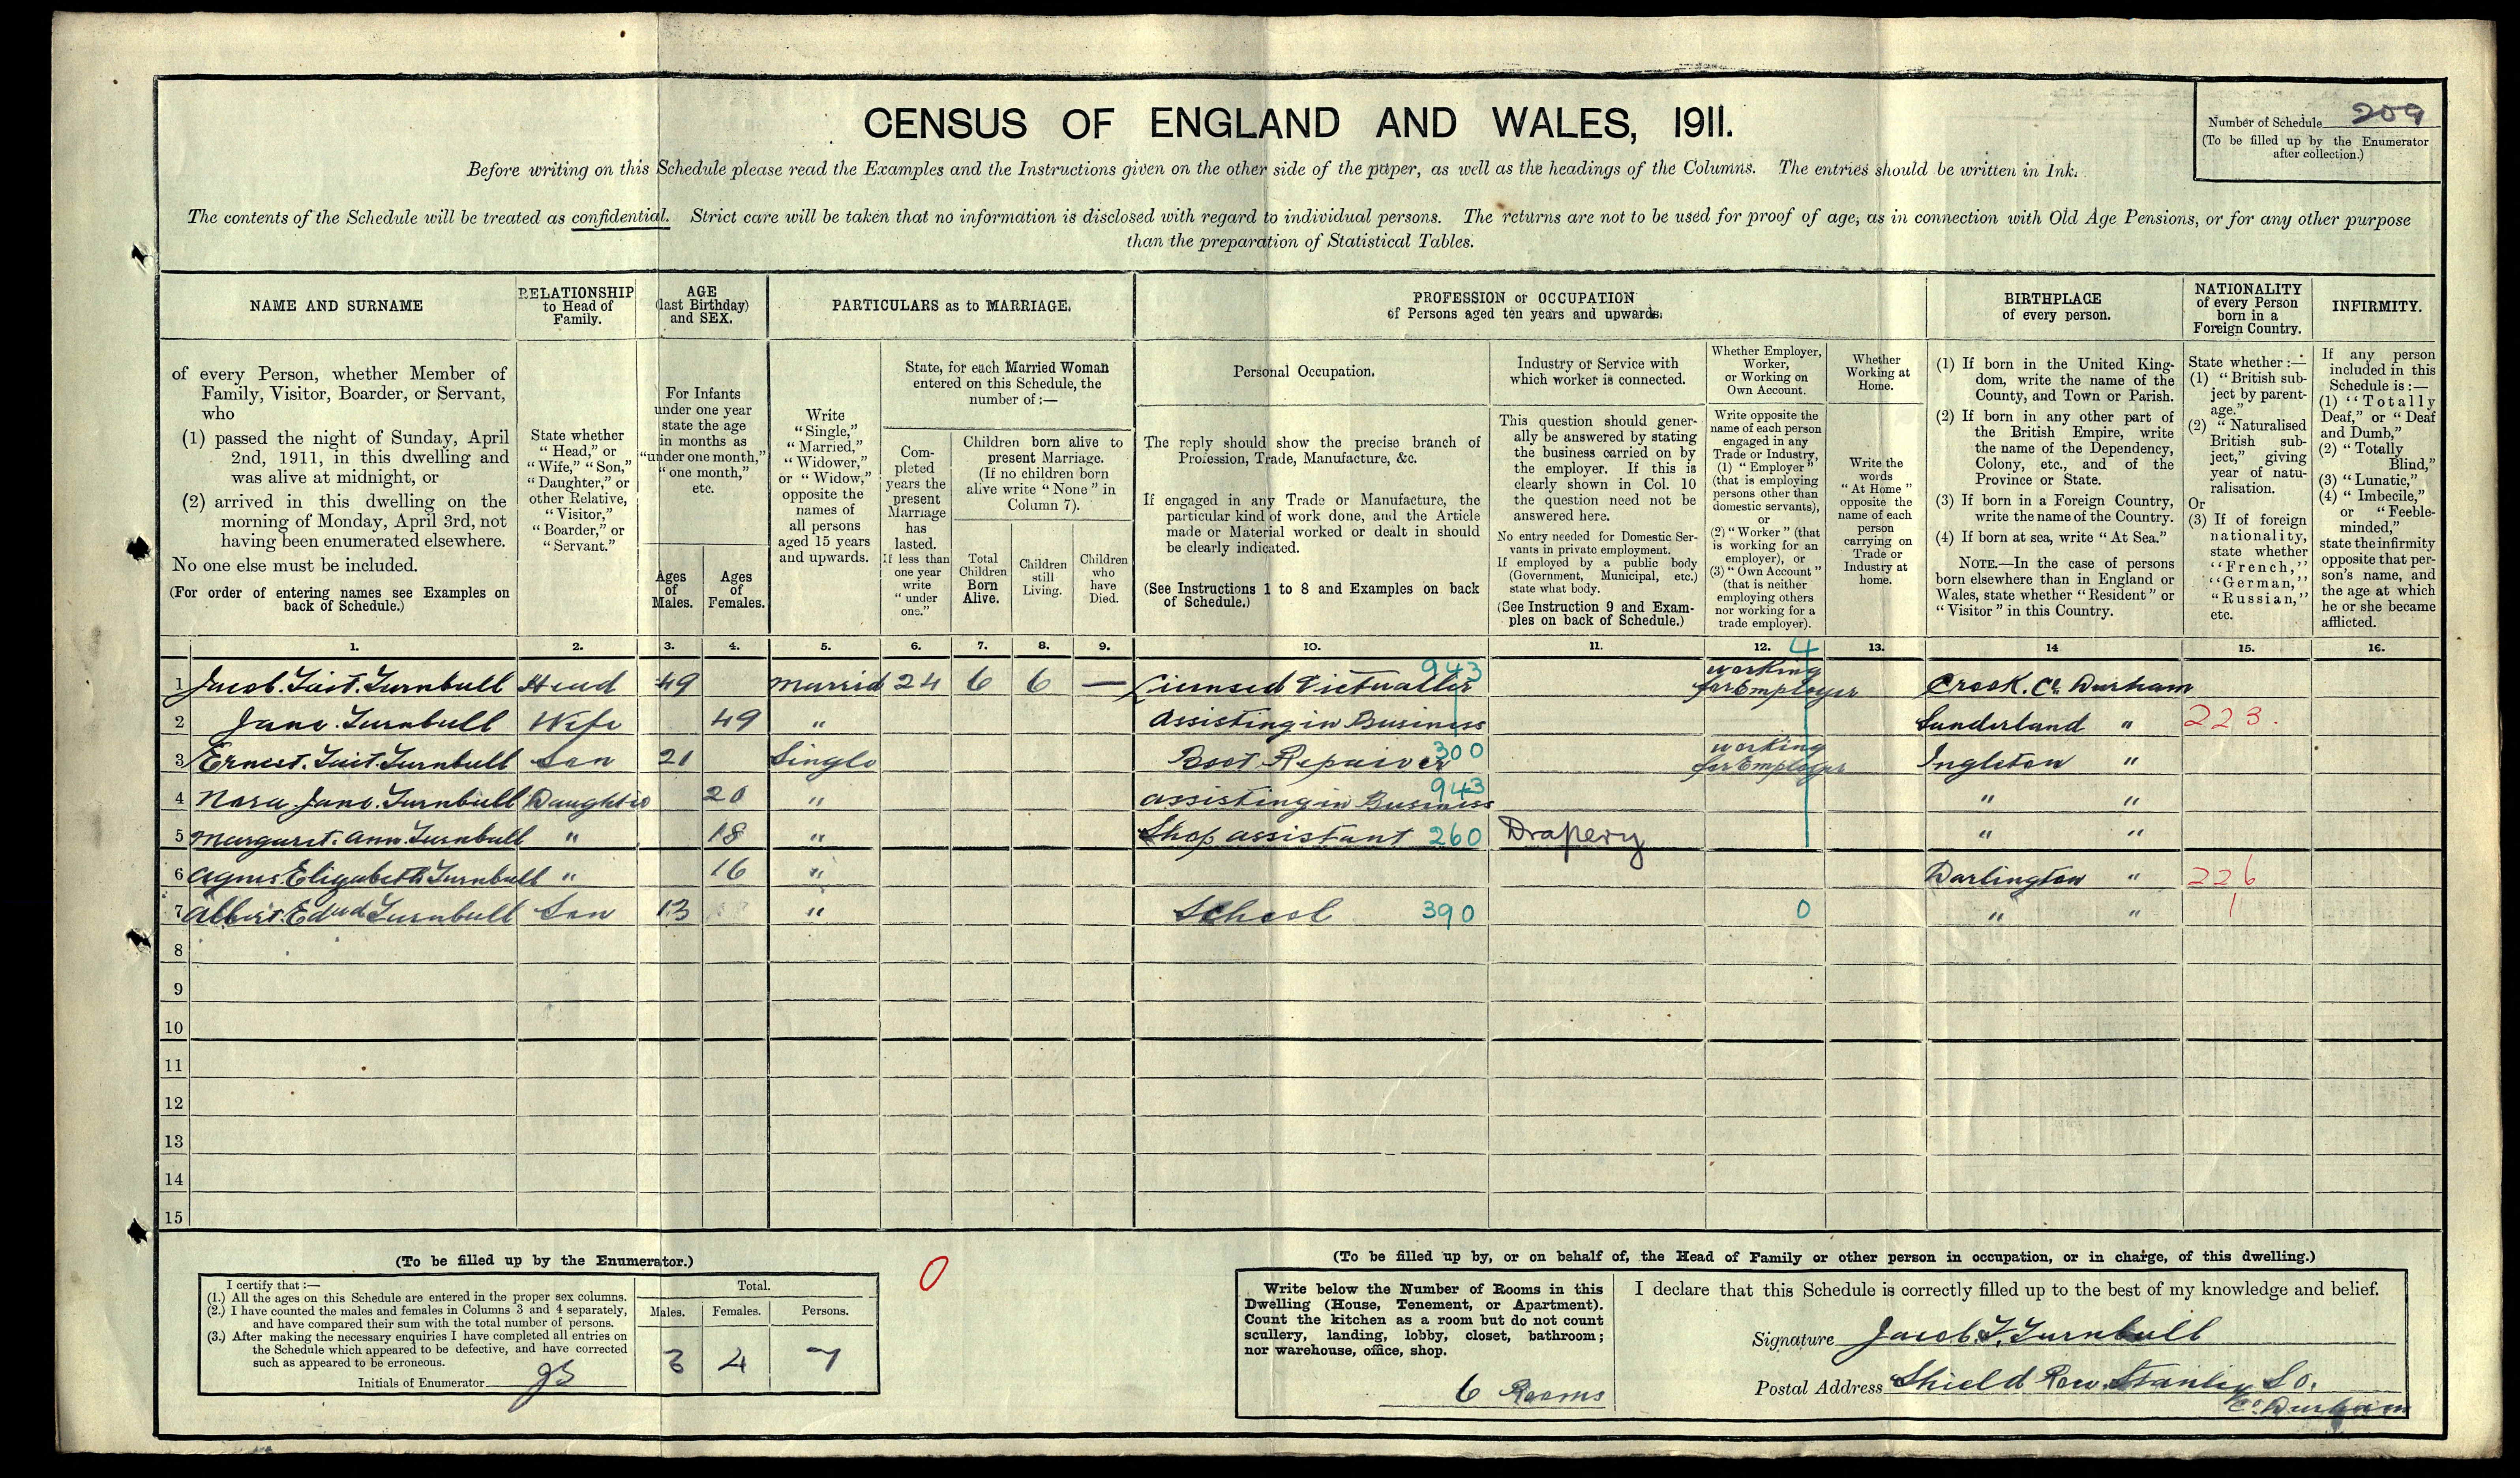 CENSUS OF ENGLAND AND WALES, 1911.
Number of Schedule 209
(To be filled up by the Enumerator
after collection.)
Before writing on this Schedule please read the Examples and the Instructions given on the other side of the paper, as well as the headings of the Columns. The entries should be written in Ink.
The contents of the Schedule will be treated as confidential. Strict care will be taken that no information is disclosed with regard to individual persons. The returns are not to be used for proof of age, as in connection with Old Age Pensions, or for any other purpose
than the preparation of Statistical Tables.
NAME AND SURNAME
of every Person, whether Member of
Family, Visitor, Boarder, or Servant,
who
(1) passed the night of Sunday, April
2nd, 1911, in this dwelling and
was alive at midnight, or
(2) arrived in this dwelling on the
morning of Monday, April 3rd, not
having been enumerated elsewhere.
No one else must be included.
(For order of entering names see Examples on
back of Schedule.)
RELATIONSHIP
to Head of
Family.
State whether
"Head," or
"Wife," "Son,"
"Daughter," or
other Relative,
"Visitor,"
"Boarder," or
"Servant."
AGE
(last Birthday)
and SEX.
For Infants
under one year
state the age
in months as
"under one month,"
"one month,"
etc.
Ages
of
Males.
Ages
of
Females.
PARTICULARS as to MARRIAGE.
Write
"Single,"
"Married,"
"Widower,"
or "Widow,"
opposite the
names of
all persons
aged 15 years
and upwards.
State, for each Married Woman
entered on this Schedule, the
number of:—
Com-
pleted
years the
present
Marriage
has
lasted.
If less than
one year
write
"under
one."
Children born alive to
present Marriage.
(If no children born
alive write "None" in
Column 7).
Total
Children
Born
Alive.
Children
still
Living.
Children
who
have
Died.
PROFESSION or OCCUPATION
of Persons aged ten years and upwards.
Personal Occupation.
The reply should show the precise branch of
Profession, Trade, Manufacture, &c.
If engaged in any Trade or Manufacture, the
particular kind of work done, and the Article
made or Material worked or dealt in should
be clearly indicated.
(See Instructions 1 to 8 and Examples on back
of Schedule.)
Industry or Service with
which worker is connected.
This question should gener-
ally be answered by stating
the business carried on by
the employer. If this is
clearly shown in Col. 10
the question need not be
answered here.
No entry needed for Domestic Ser-
vants in private employment.
If employed by a public body
(Government, Municipal, etc.)
state what body.
(See Instruction 9 and Exam-
ples on back of Schedule.)
Whether Employer,
Worker,
or Working on
Own Account.
Write opposite the
name of each person
engaged in any
Trade or Industry,
(1) "Employer"
(that is employing
persons other than
domestic servants),
or
(2) "Worker" (that
is working for an
employer), or
(3) "Own Account"
(that is neither
employing others
nor working for a
trade employer).
Whether
Working at
Home.
Write the
words
"At Home"
opposite the
name of each
person
carrying on
Trade or
Industry at
home.
BIRTHPLACE
of every person.
(1) If born in the United King-
dom, write the name of the
County, and Town or Parish.
(2) If born in any other part of
the British Empire, write
the name of the Dependency,
Colony, etc., and of the
Province or State.
(3) If born in a Foreign Country,
write the name of the Country.
(4) If born at sea, write "At Sea."
NOTE.—In the case of persons
born elsewhere than in England or
Wales, state whether "Resident" or
"Visitor" in this Country.
NATIONALITY
of every Person
born in a
Foreign Country.
State whether:—
(1) "British sub-
ject by parent-
age."
(2) "Naturalised
British sub-
ject," giving
year of natu-
ralisation.
Or
(3) If of foreign
nationality,
state whether
"French,"
"German,"
"Russian,"
etc.
INFIRMITY.
If any person
included in this
Schedule is:—
(1) "Totally
Deaf," or "Deaf
and Dumb,"
(2) "Totally
Blind,"
(3) "Lunatic,"
(4) "Imbecile,"
or "Feeble-
minded,"
state the infirmity
opposite that per-
son's name, and
the age at which
he or she became
afflicted.
1. 2. 3. 4. 5. 6. 7. 8. 9. 10. 11. 12. 13. 14 15. 16.
4
1 Jacob. Tait. Turnbull Head 49 Married 24 6 6 — Licensed Victualler 943 working for Employer Crook. Co Durham
2 Jane. Turnbull Wife 49 " assisting in Business Sunderland " 223.
3 Ernest. Tait. Turnbull Son 21 Single Boot Repairer 300 working for Employer Ingleton "
4 Nora Jane. Turnbull Daughter 20 " assisting in Business 943 " "
5 Margaret. Ann. Turnbull " 18 " Shop assistant 260 Drapery " "
6 Agnes. Elizabeth Turnbull " 16 " Darlington " 226
7 Albert. Edwd Turnbull Son 13 " School 390 0 " " 1
8
9
10
11
12
13
14
15
(To be filled up by the Enumerator.)
I certify that:—
(1.) All the ages on this Schedule are entered in the proper sex columns.
(2.) I have counted the males and females in Columns 3 and 4 separately,
and have compared their sum with the total number of persons.
(3.) After making the necessary enquiries I have completed all entries on
the Schedule which appeared to be defective, and have corrected
such as appeared to be erroneous.
Initials of Enumerator
Total.
Males. Females. Persons.
3 4 7
0
(To be filled up by, or on behalf of, the Head of Family or other person in occupation, or in charge, of this dwelling.)
Write below the Number of Rooms in this
Dwelling (House, Tenement, or Apartment).
Count the kitchen as a room but do not count
scullery, landing, lobby, closet, bathroom;
nor warehouse, office, shop.
6 Rooms
I declare that this Schedule is correctly filled up to the best of my knowledge and belief.
Signature Jacob. T. Turnbull
Postal Address Shield Row. Stanley S.O.
Co. Durham